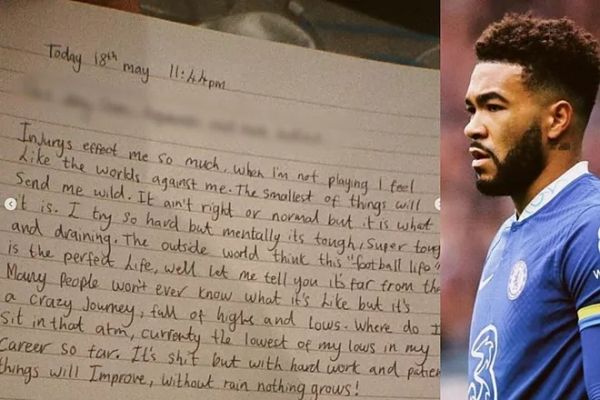 Today 18th may 11:44pm
Injurys effect me so much, when i'm not playing I feel
Like the worlds against me. The smallest of things will
Send me wild. It ain't right or normal but it is what
it is. I try so hard but mentally its tough, Super toug
and draining. The outside world think this "football life"
is the perfect Life, well let me tell you its far from tha
Many People won't ever know what it's Like but it's
a crazy Journey, full of highs and Lows. Where do I
Sit in that atm, currently the lowest of my lows in my
Career so far. It's sh*t but with hard work and patien
things will Improve, without rain nothing grows!
3